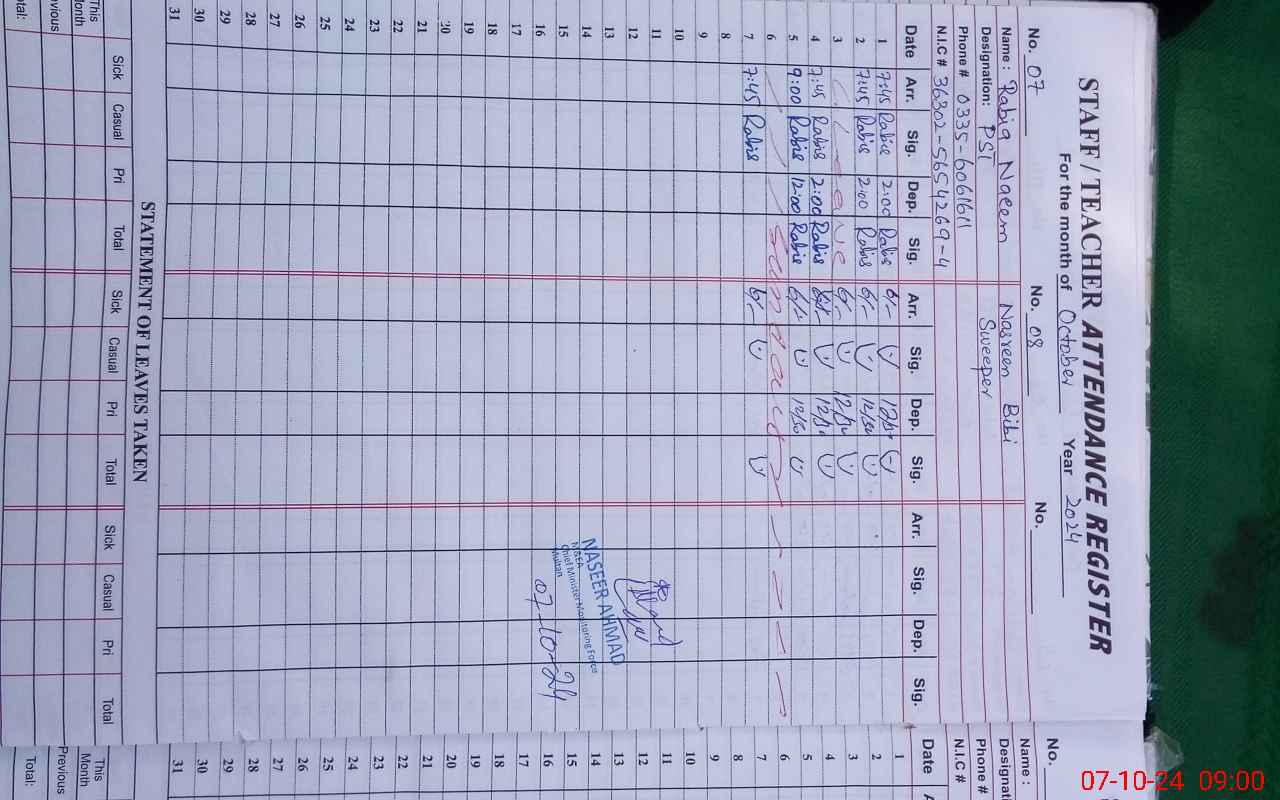 STAFF / TEACHER ATTENDANCE REGISTER
For the month of October Year 2024
No. 07 No. 08 No.
Name: Rabia Naeem Nasreen Bibi
Designation: PST Sweeper
Phone # 0335-6061611
N.I.C # 36302-5654269-4
Date Arr. Sig. Dep. Sig. Arr. Sig. Dep. Sig. Arr. Sig. Dep. Sig.
1 7:45 Rabia 2:00 Rabia
2 7:45 Rabia 2:00 Rabia 12/30
3 Leave
4 7:45 Rabia 2:00 Rabia
5 9:00 Rabia 12:00 Rabia 12/30
6 Sunday
7 7:45 Rabia
8
9
10
11
12
13
14
15
16
17
18
19
20
21
22
23
24
25
26
27
28
29
30
31
NASEER AHMAD
M&EA
Chief Minister Monitoring Force
Multan
07-10-24
STATEMENT OF LEAVES TAKEN
Sick Casual Pri Total Sick Casual Pri Total Sick Casual Pri Total
This Month
vious
tal:
No.
Name :
Designati
Phone #
N.I.C #
Date
1
2
3
4
5
6
7
8
9
10
11
12
13
14
15
16
17
18
19
20
21
22
23
24
25
26
27
28
29
30
31
This Month
Previous
Total:
07-10-24 09:00